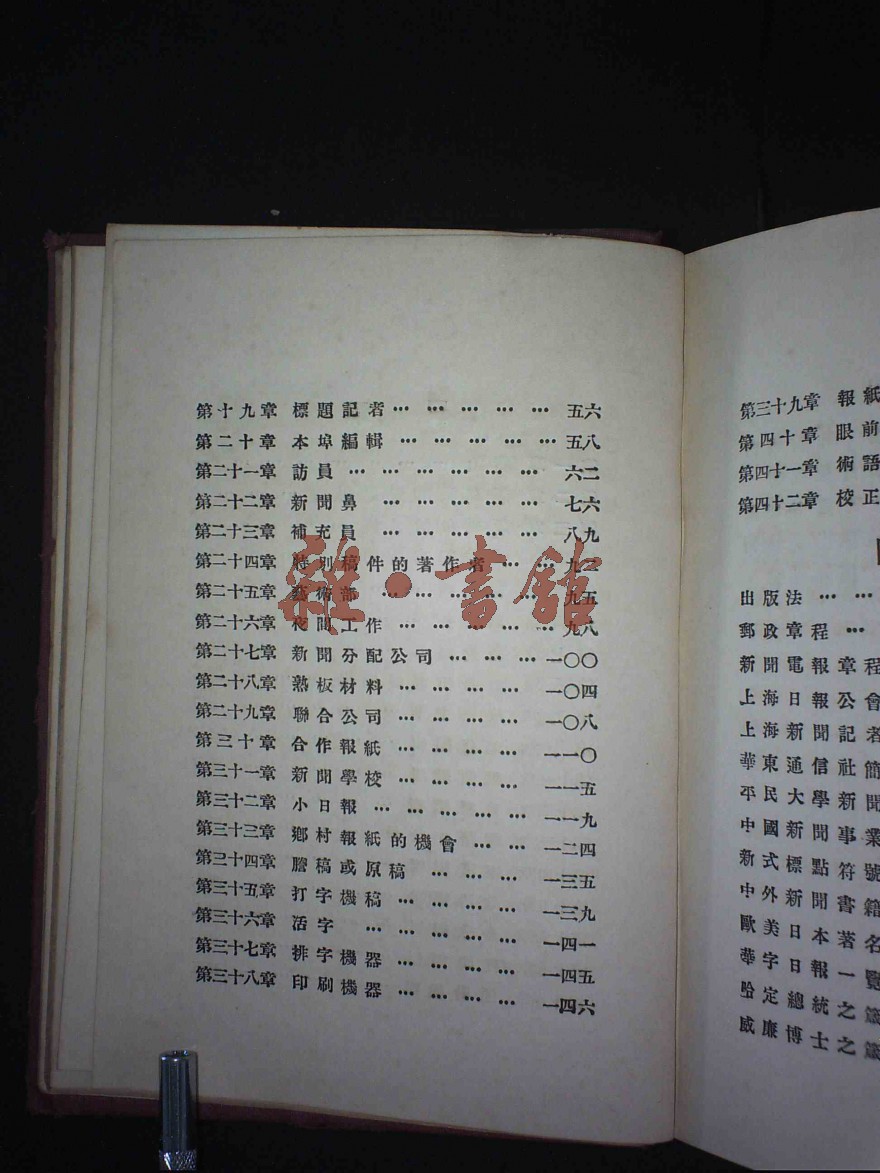 第十九章 標題記者 … … … … … 五六
第二十章 本埠編輯 … … … … … 五八
第二十一章 訪員 … … … … … … 六二
第二十二章 新聞鼻 … … … … … 七六
第二十三章 補充員 … … … … … 八九
第二十四章 特別稿件的著作者 … … 九二
第二十五章 藝術部 … … … … … 九五
第二十六章 夜間工作 … … … … … 九八
第二十七章 新聞分配公司 … … … 一〇〇
第二十八章 熟板材料 … … … … 一〇四
第二十九章 聯合公司 … … … … 一〇八
第三十章 合作報紙 … … … … 一一〇
第三十一章 新聞學校 … … … … 一一五
第三十二章 小日報 … … … … 一一九
第三十三章 鄉村報紙的機會 … … 一二四
第三十四章 謄稿或原稿 … … … 一三五
第三十五章 打字機稿 … … … … 一三九
第三十六章 活字 … … … … … 一四一
第三十七章 排字機器 … … … … 一四五
第三十八章 印刷機器 … … … … 一四六
雜·書館
第三十九章 報紙
第四十章 眼前
第四十一章 術語
第四十二章 校正
出版法 … …
郵政章程 …
新聞電報章程
上海日報公會
上海新聞記者
華東通信社簡
平民大學新聞
中國新聞事業
新式標點符號
中外新聞書籍
歐美日本著名
華字日報一覽
哈定總統之箴
威廉博士之箴